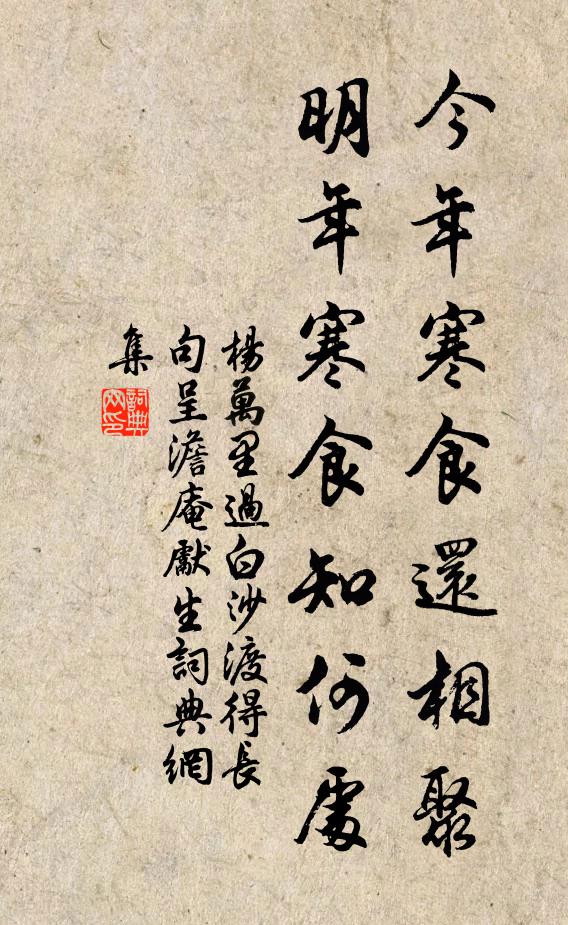 今年寒食還相聚
明年寒食知何處
楊萬里過白沙渡得長
句呈澹庵獻生詞典網
集
詞典網印